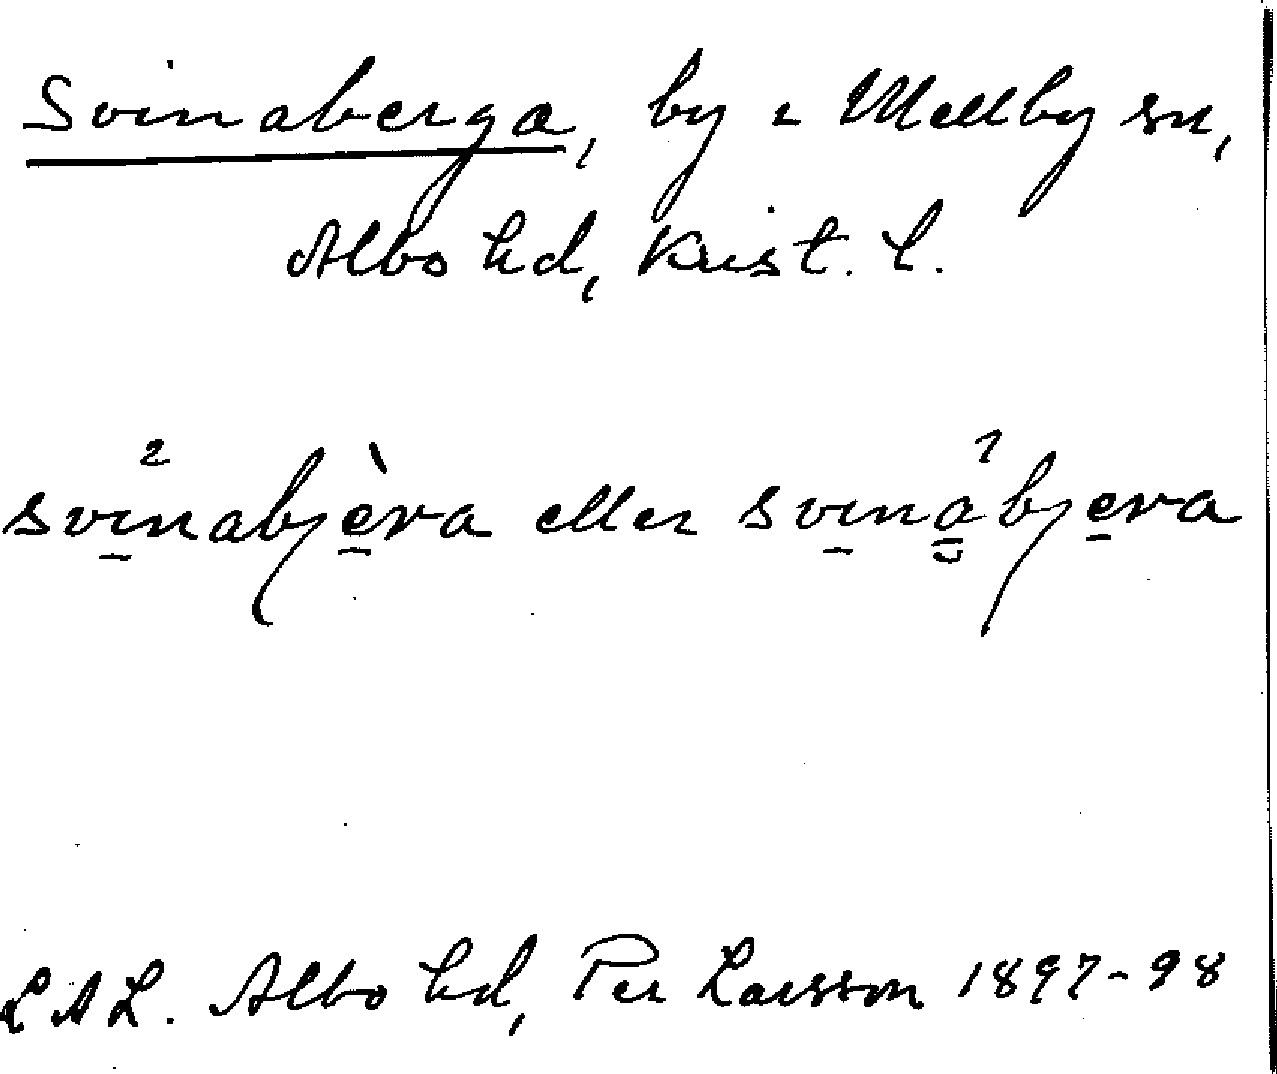 Svinaberga, by i Mellby sn,
Albo hd, Krist. l.
svi̱²nabjè̱ra eller svi̱na̳¹bje̱ra
LAL. Albo hd, Per Larsson 1897-98